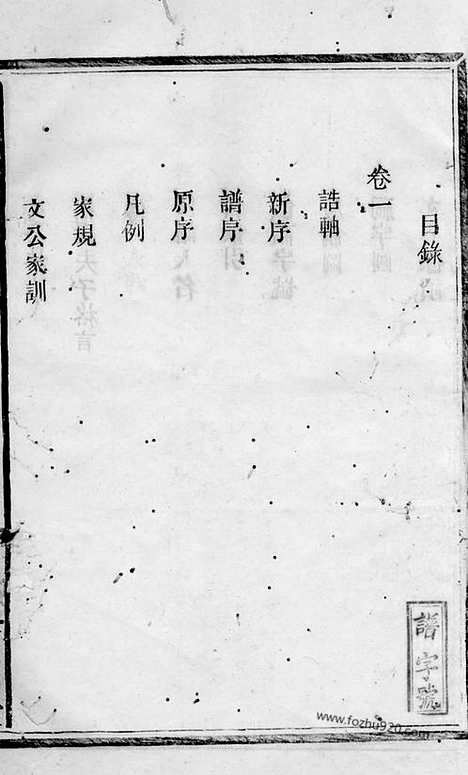 目錄
卷一
誥軸
新序
譜序
原序
凡例
家規
文公家訓
譜字號
www.fozhu920.com